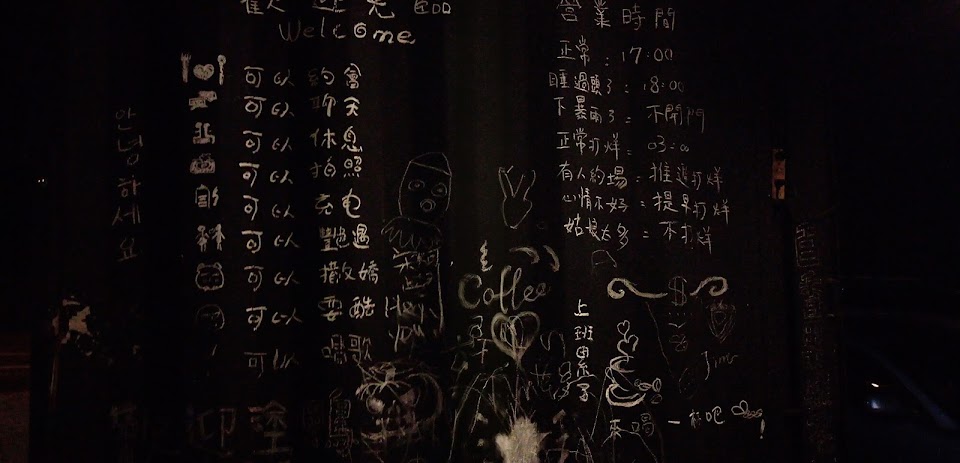 歡迎光臨
Welcome
可以約會
可以聊天
可以休息
可以拍照
可以充电
可以豔遇
可以撒嬌
可以耍酷
可以唱歌
안녕하세요
營業時間
正常：17:00
睡過頭了：18:00
下暴雨了：不開門
正常打烊：03:00
有人約場：推遲打烊
心情不好：提早打烊
姑娘太多：不打烊
Coffee
$
上班累了
來喝一杯吧!
迎塗